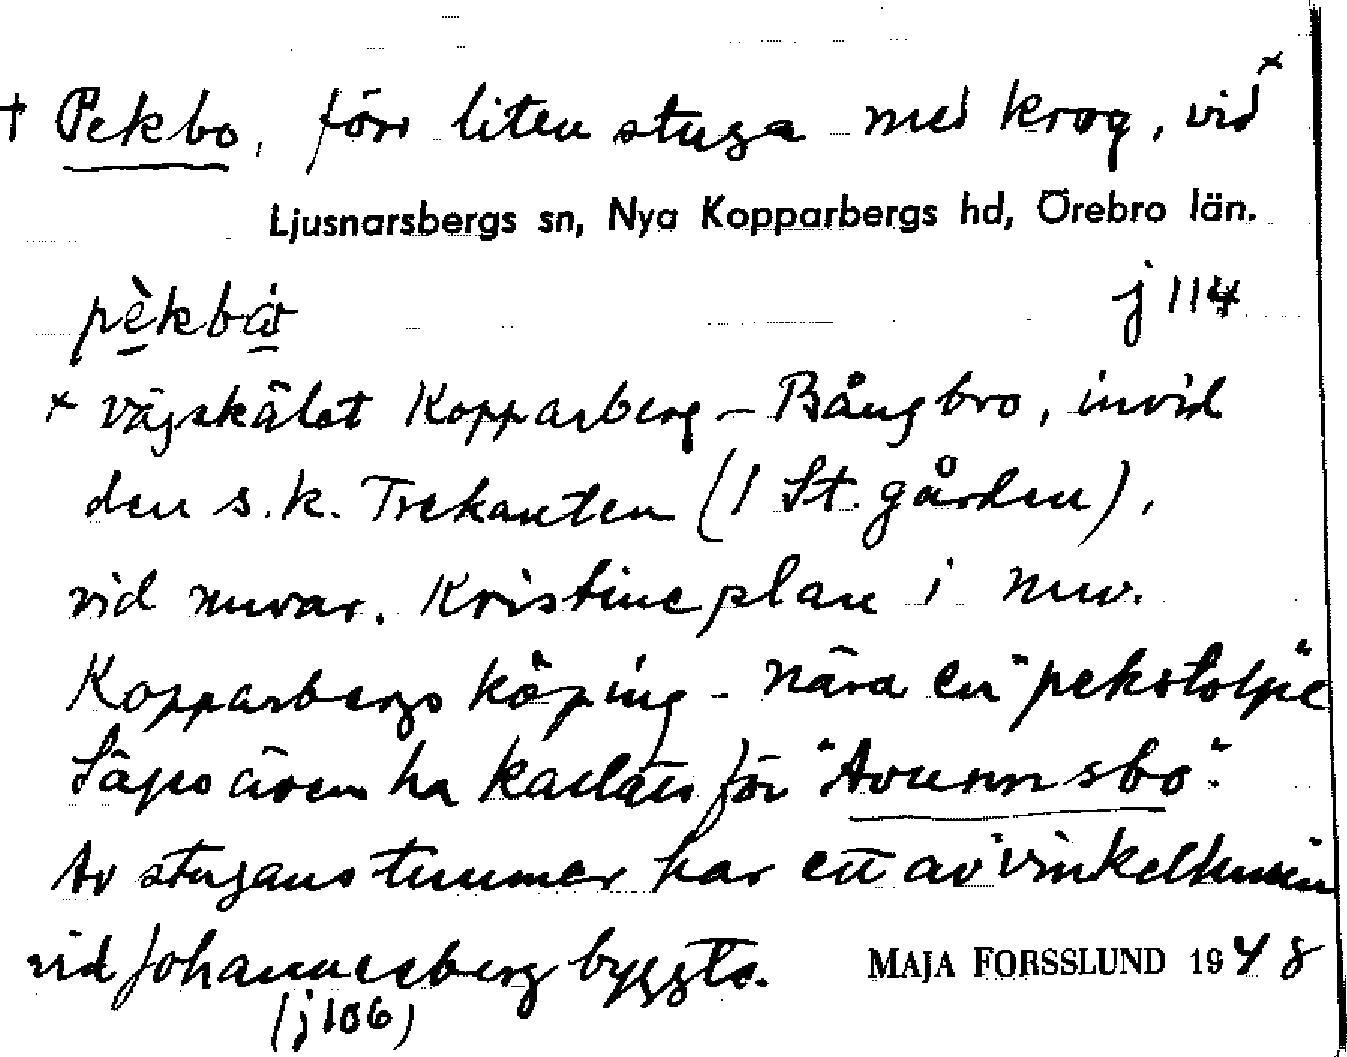 † Pekbo, förr liten stuga med krog, vid ×
Ljusnarsbergs sn, Nya Kopparbergs hd, Örebro län.
j 114
× vägskälet Kopparberg – Bångbro, invid
den s.k. Trekanten (1 St. gården),
vid nuvar. Kristineplan i nuv.
Kopparbergs köping – nära en "pekstolpe"
Säges även ha kallats för "Avunnsbo".
Av stugans timmer har ett av vinkelhusen
vid Johannesberg byggts.
MAJA FORSSLUND 1948
(j106)